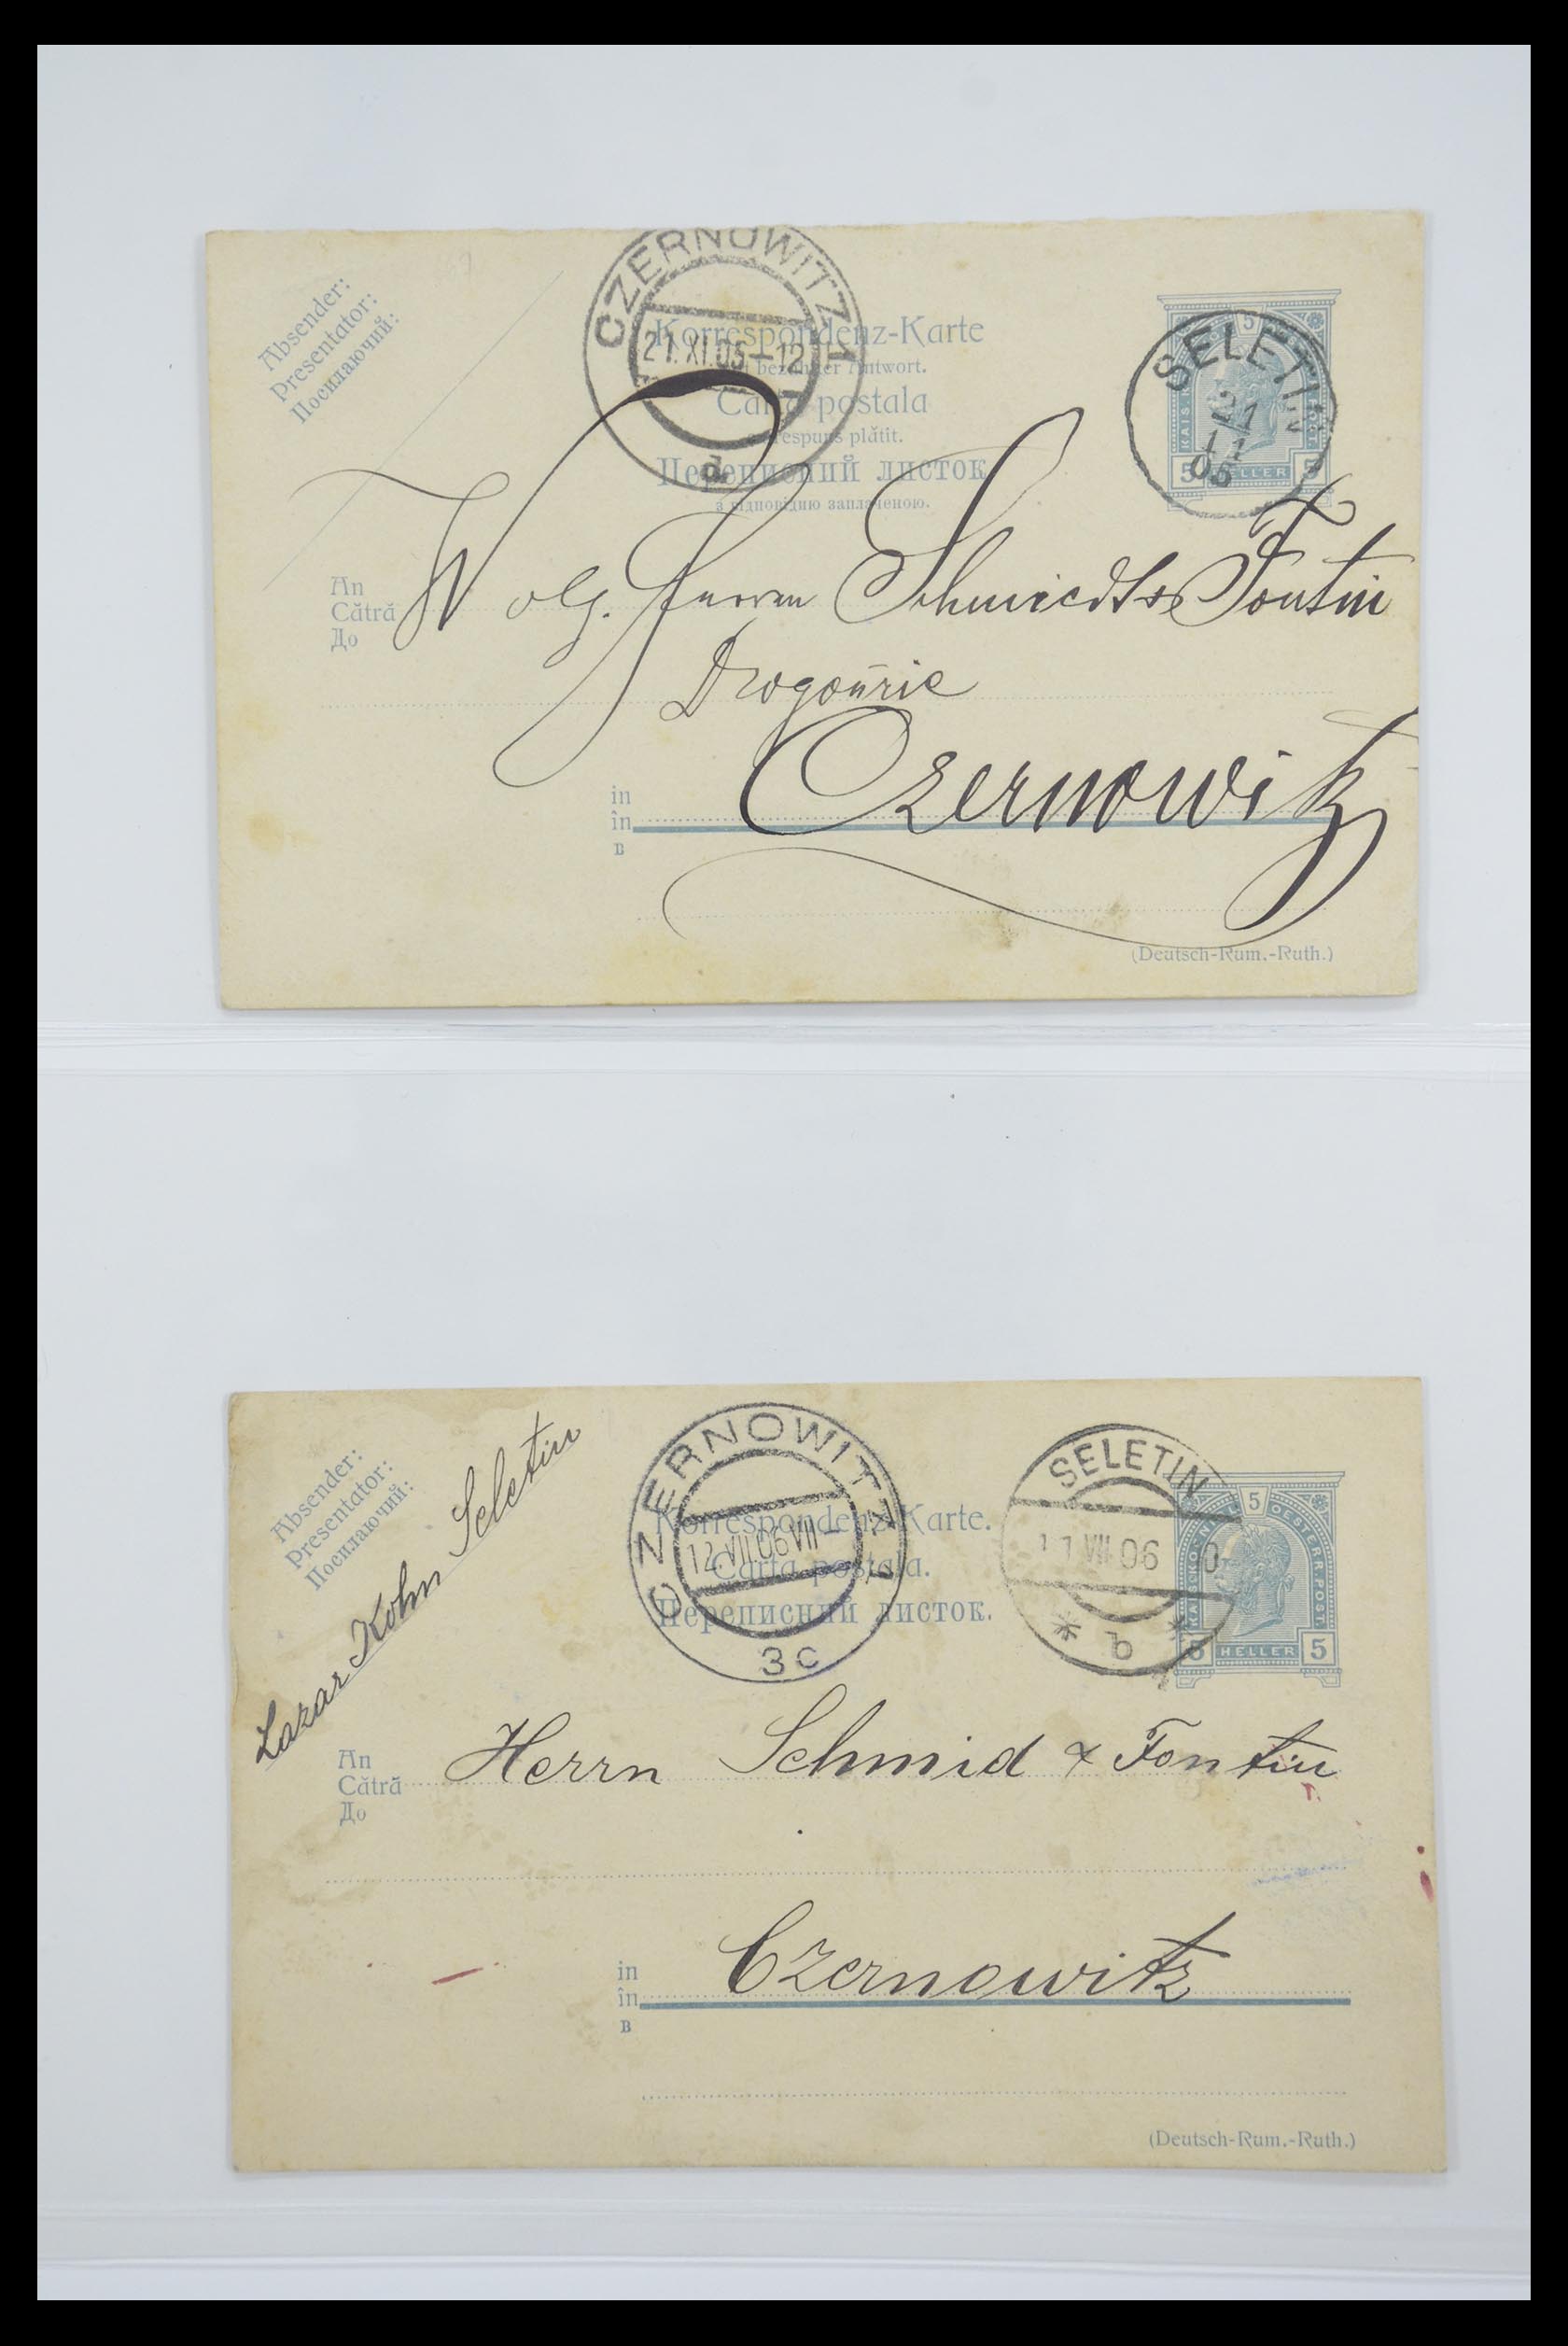 Absender:
Presentator:
Посилаючий:
CZERNOWITZ 1
21.XI.05-12
d
Korrespondenz-Karte
bezahlter Antwort.
Carta postala
respuns plătit.
Переписний листок
з відповідию заплаченою.
5
KAIS.K
HELLER
5 5
SELETIN
21
11
05
An
Cătră
До
Wolg. Herrn Schmiedt & Fontin
Droguerie
in
în
в
Czernowitz
(Deutsch-Rum.-Ruth.)
Absender:
Presentator:
Посилаючий:
Lazar Kohn Seletin
CZERNOWITZ 1
12.VII.06 VII-
3c
Korrespondenz-Karte.
Carta postala.
Переписний листок.
SELETIN
11 VII 06
* b *
5
OESTERR. POST.
5 HELLER 5
An
Cătră
До
Herrn Schmid & Fontin
in
în
в
Czernowitz
(Deutsch-Rum.-Ruth.)